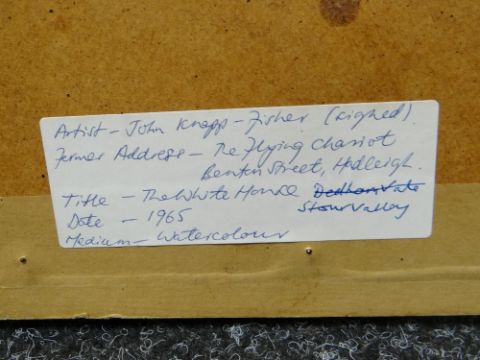 Artist - John Knapp-Fisher (signed).
Former Address - The Flying Chariot
Benton Street, Hadleigh.
Title - The White House Dedham Vale
Stour Valley
Date - 1965
Medium - Watercolour